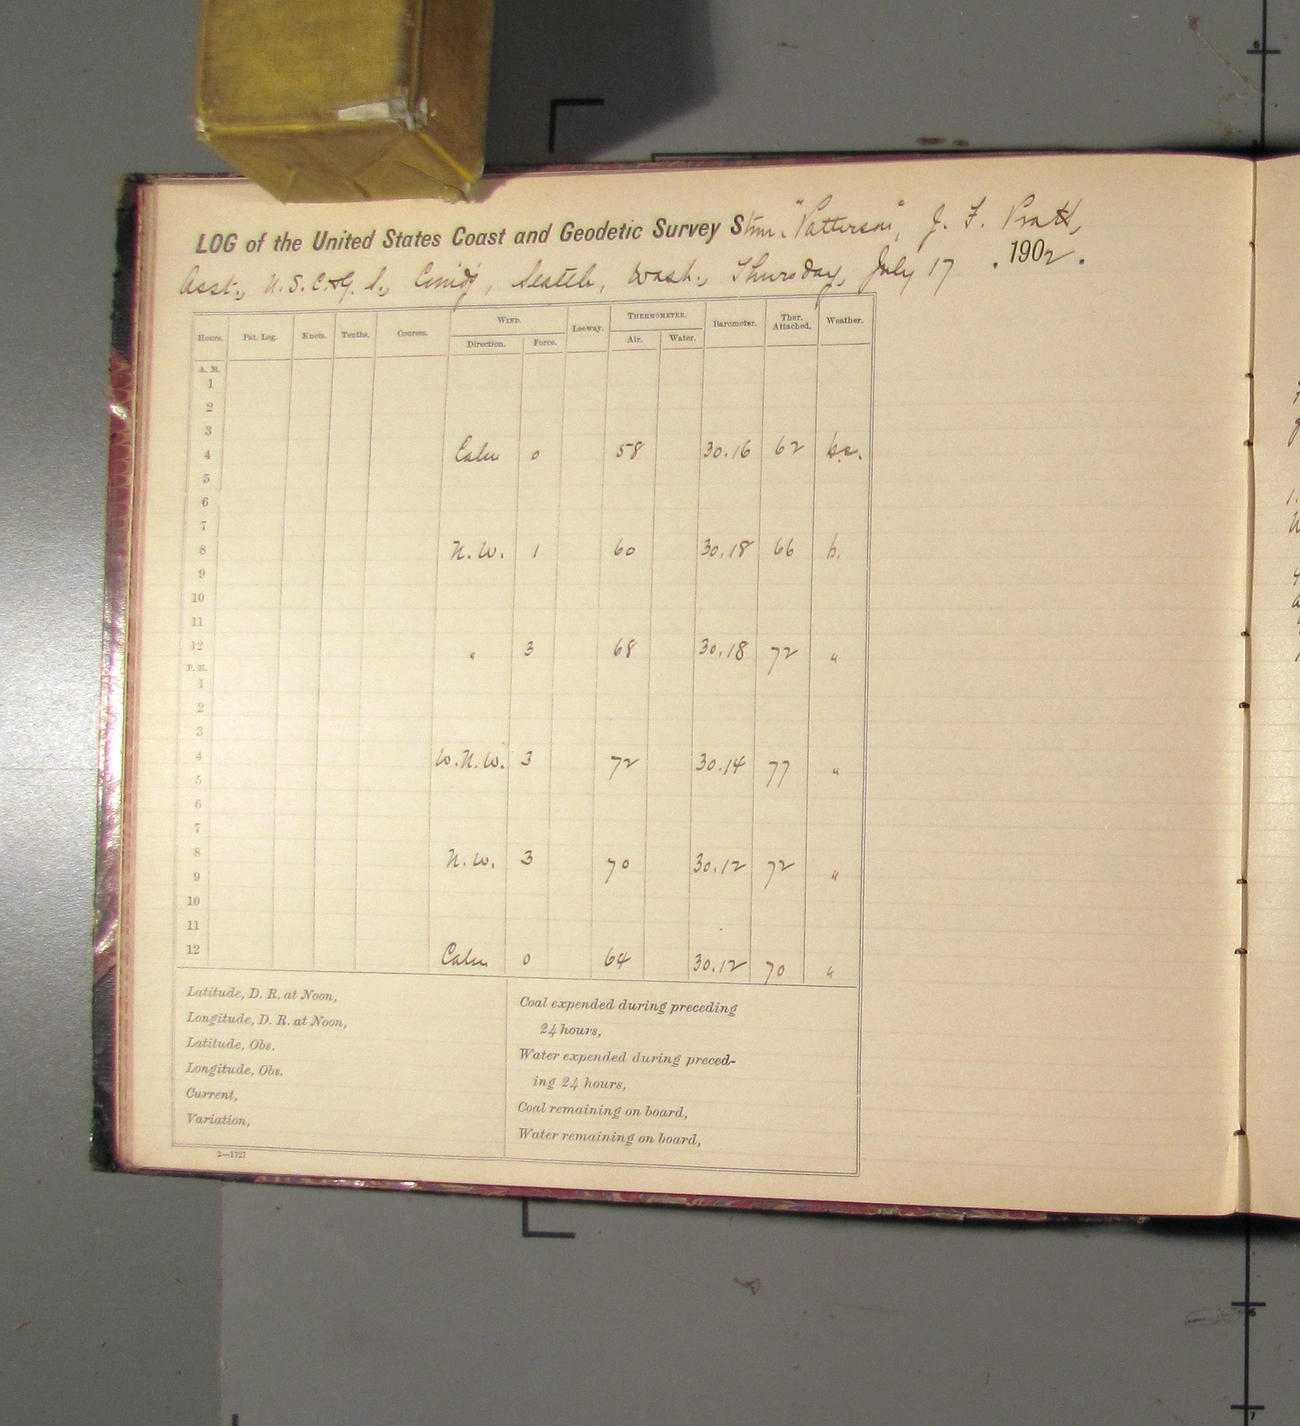 LOG of the United States Coast and Geodetic Survey Stmr. "Patterson", J. F. Pratt,
Asst., U.S.C.&G.S., Comd'g, Seattle, Wash., Thursday, July 17, 1902.
Hours. Pat. Log. Knots. Tenths. Courses. WIND. Leeway. THERMOMETER. Barometer. Ther. Attached. Weather.
Direction. Force. Air. Water.
A. M.
1
2
3
4 Calm 0 58 30.16 62 b.c.
5
6
7
8 N.W. 1 60 30.18 66 b.
9
10
11
12 " 3 68 30.18 72 "
P. M.
1
2
3
4 W.N.W. 3 72 30.14 77 "
5
6
7
8 N.W. 3 70 30.12 72 "
9
10
11
12 Calm 0 64 30.12 70 "
Latitude, D. R. at Noon,
Longitude, D. R. at Noon,
Latitude, Obs.
Longitude, Obs.
Current,
Variation,
Coal expended during preceding
24 hours,
Water expended during preced-
ing 24 hours,
Coal remaining on board,
Water remaining on board,
2—1727
6
6
7